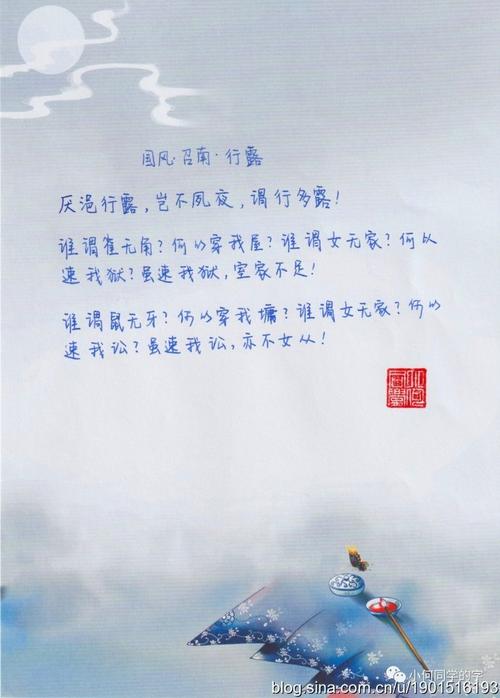 国风·召南·行露
厌浥行露,岂不夙夜,谓行多露!
谁谓雀无角?何以穿我屋?谁谓女无家?何以
速我狱?虽速我狱,室家不足!
谁谓鼠无牙?何以穿我墉?谁谓女无家?何以
速我讼?虽速我讼,亦不女从!
小何同学的字
blog.sina.com.cn/u/1901516193